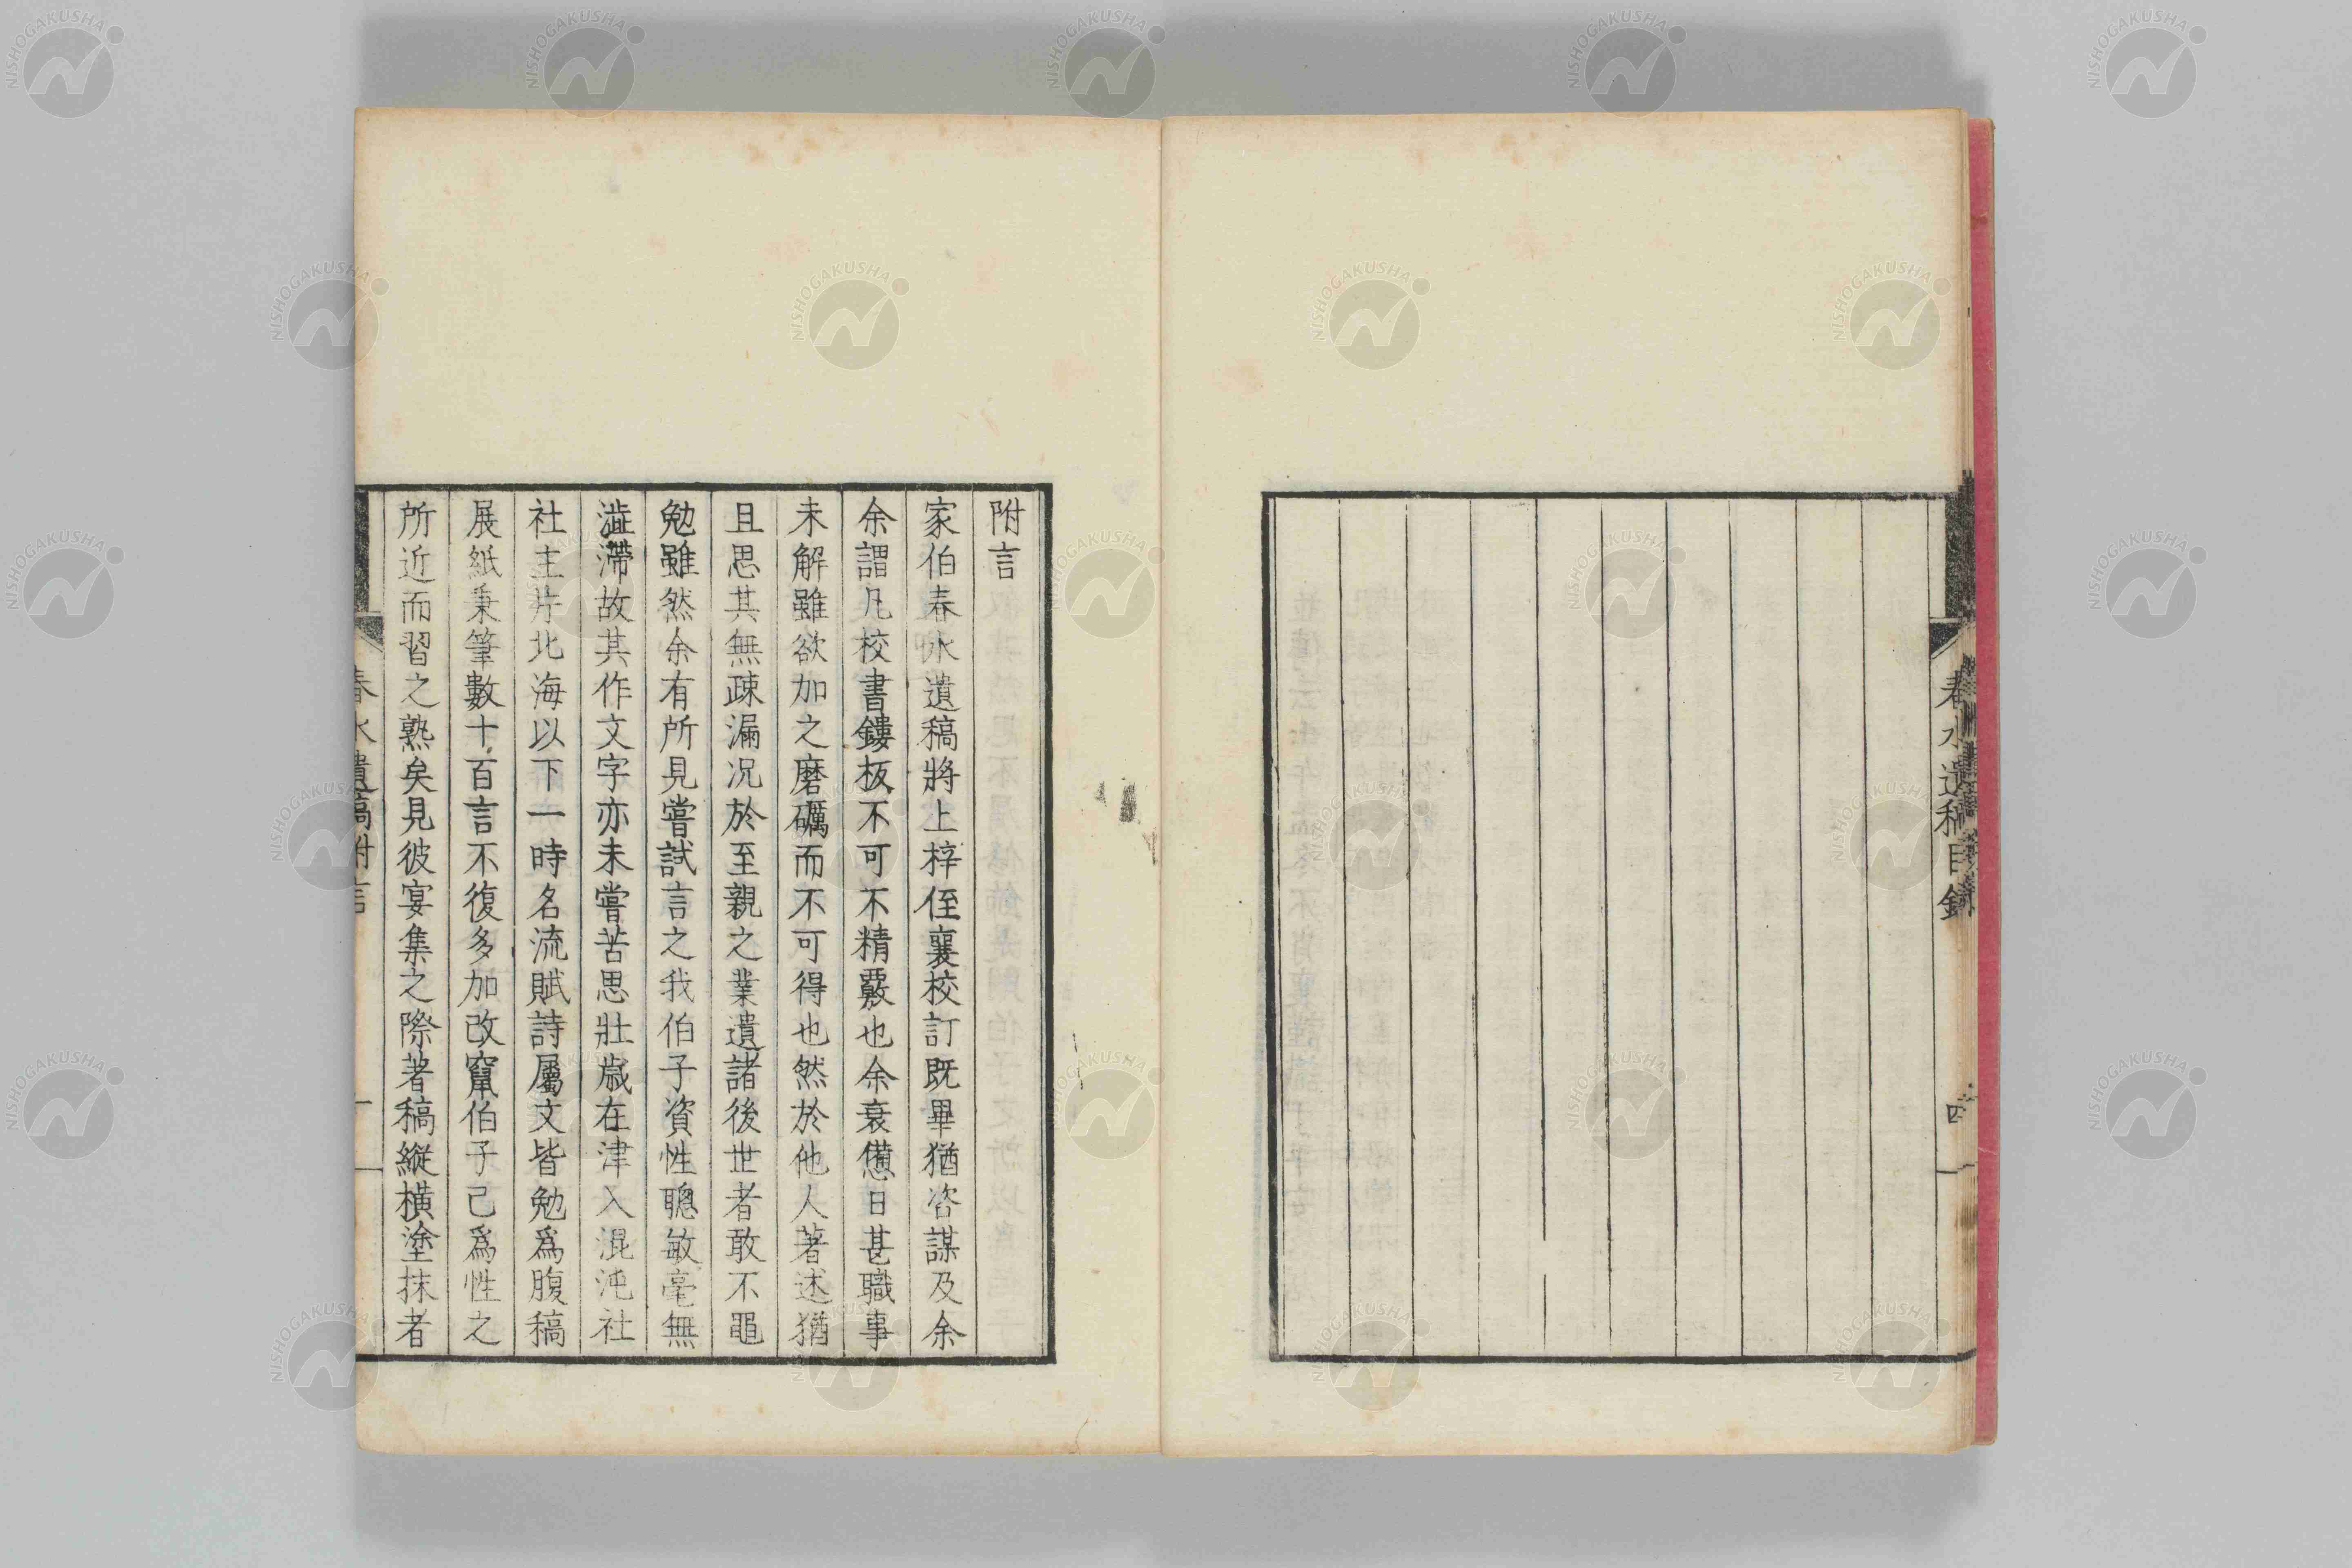 春水遺稿目錄
四
附言
家伯春水遺稿將上梓侄襄校訂既畢猶咨謀及余
余謂凡校書鏤板不可不精覈也余衰憊日甚職事
未解雖欲加之磨礪而不可得也然於他人著述猶
且思其無疎漏况於至親之業遺諸後世者敢不黽
勉雖然余有所見嘗試言之我伯子資性聰敏毫無
澁滯故其作文字亦未嘗苦思壯歲在津入混沌社
社主片北海以下一時名流賦詩屬文皆勉爲腹稿
展紙秉筆數十百言不復多加改竄伯子已爲性之
所近而習之熟矣見彼宴集之際著稿縱橫塗抹者
春水遺稿附言
一
NISHOGAKUSHA